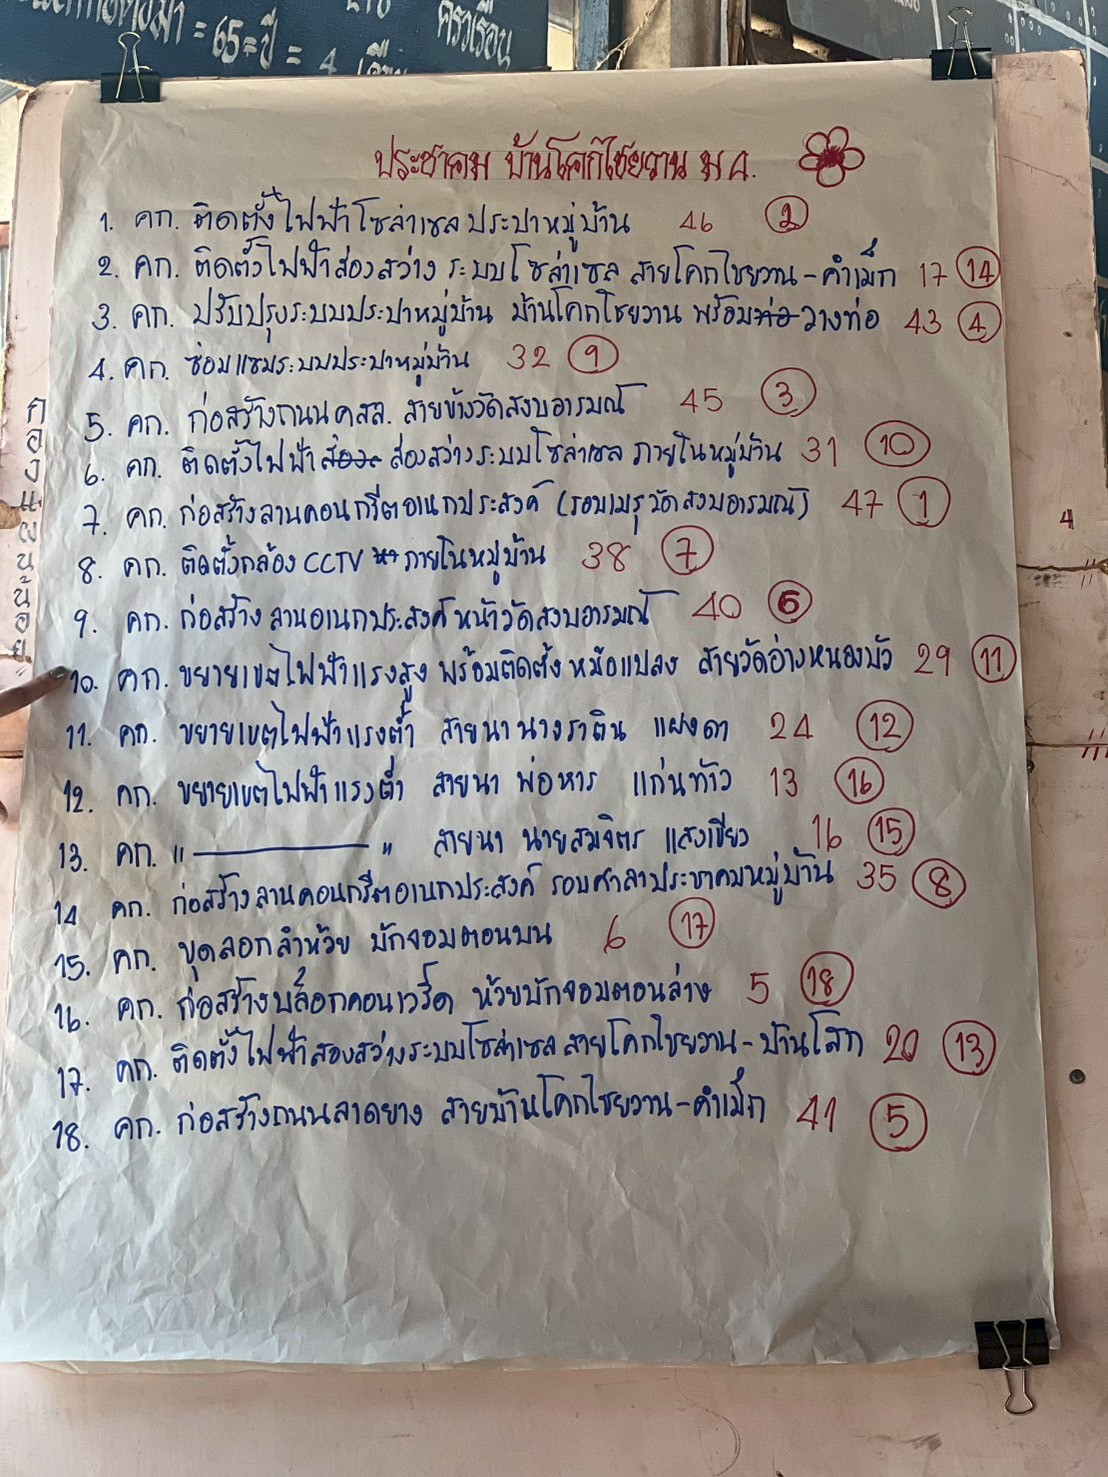 = 65 ปี = 4
ครัวเรือน
ประชาคม บ้านโคกไชยวาน ม 4.
1. คก. ติดตั้งไฟฟ้าโซล่าเซล ประปาหมู่บ้าน 46 2
2. คก. ติดตั้งไฟฟ้าส่องสว่าง ระบบโซล่าเซล สายโคกไชยวาน - คำเม็ก 17 14
3. คก. ปรับปรุงระบบประปาหมู่บ้าน บ้านโคกไชยวาน พร้อมวางท่อ 43 4
4. คก. ซ่อมแซมระบบประปาหมู่บ้าน 32 9
5. คก. ก่อสร้างถนน คสล. สายข้างวัดสงบอารมณ์ 45 3
6. คก. ติดตั้งไฟฟ้า ส่องสว่างระบบโซล่าเซล ภายในหมู่บ้าน 31 10
7. คก. ก่อสร้างลานคอนกรีตอเนกประสงค์ (รอบเมรุวัดสงบอารมณ์) 47 1
8. คก. ติดตั้งกล้อง CCTV ภายในหมู่บ้าน 38 7
9. คก. ก่อสร้าง ลานอเนกประสงค์หน้าวัดสงบอารมณ์ 40 6
10. คก. ขยายเขตไฟฟ้าแรงสูง พร้อมติดตั้ง หม้อแปลง สายวัดอ่างหนองบัว 29 11
11. คก. ขยายเขตไฟฟ้าแรงต่ำ สายนา นางราตีน แฝงดา 24 12
12. คก. ขยายเขตไฟฟ้าแรงต่ำ สายนา พ่อหาร แก่นท้าว 13 16
13. คก. " ——— " สายนา นายสมจิตร แสงเขียว 16 15
14 คก. ก่อสร้างลานคอนกรีตอเนกประสงค์ รอบศาลาประชาคมหมู่บ้าน 35 8
15. คก. ขุดลอกลำห้วย บักจอมตอนบน 6 17
16. คก. ก่อสร้างบล็อกคอนเวร์ด ห้วยบักจอมตอนล่าง 5 18
17. คก. ติดตั้งไฟฟ้าส่องสว่างระบบโซล่าเซล สายโคกไชยวาน - บ้านโสก 20 13
18. คก. ก่อสร้างถนนลาดยาง สายบ้านโคกไชยวาน - คำเม็ก 41 5
4